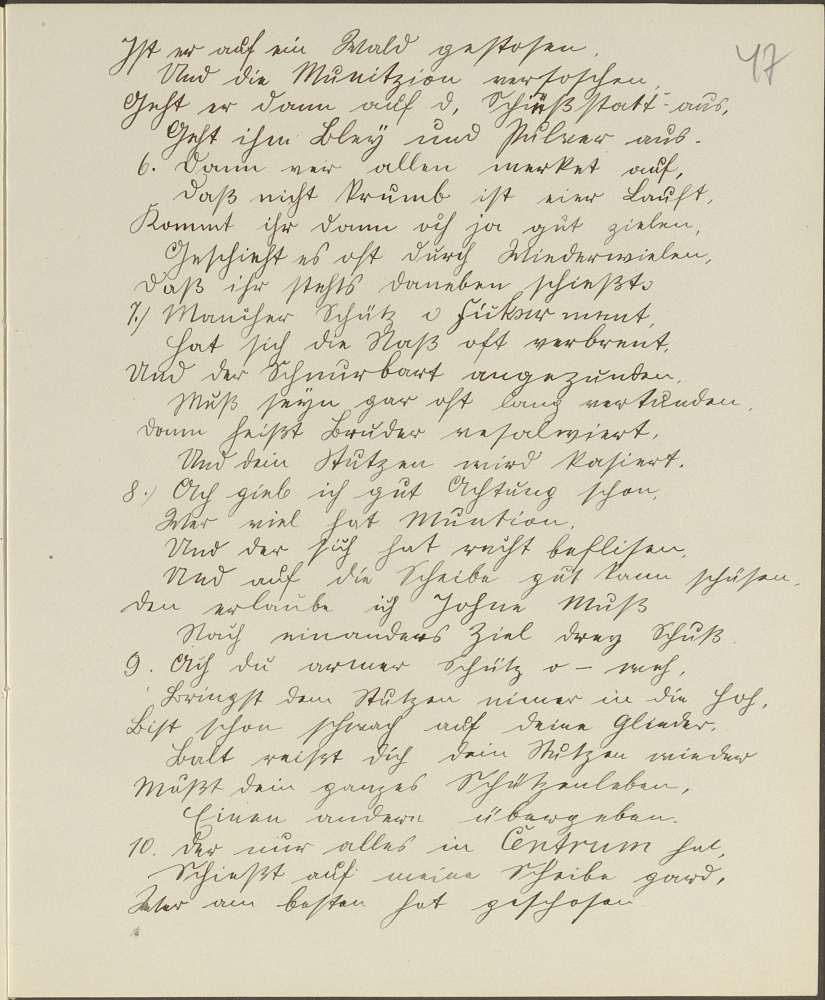 47
Ist er auf ein Wald gestosen,
Und die Munitzion verschoschen,
Geht er dann auf d. Schießstatt aus,
Geht ihm Bley und Pulver aus.
6. Dann vor allen merket auf,
Daß nicht krumb ist eier Lauft,
Kommt ihr dann och ja gut zielen,
Geschieht es oft durch Wiederwielen,
Daß ihr stehts daneben schießt.
7.) Mancher Schütz
Hat sich die Naß oft verbrent,
Und der Schnurbart angezunden,
Muß seyn gar oft lang vertunden,
Dann heißt Bruder resalwiert,
Und dein Stutzen wird kasiert.
8.) Och gieb ich gut Achtung schon,
Wer viel hat Muntion,
Und der sich hat recht beflisen,
Und auf die Scheibe gut kann schüsen,
Den erlaube ich Johne Muß
Nach einanders Ziel drey Schuß.
9. Och du armer Schütz o - weh,
Bringst dem Stutzen nimer in die Höh,
Bist schon schwach auf deine Glieder,
Balt reißt dich dein Stutzen wieder
Mußt dein ganzes Schützenleben,
Einen andern übergeben.
10. Der nur alles in Centrum hat,
Schießt auf meine Scheibe gard,
Wer am besten hat geschosen